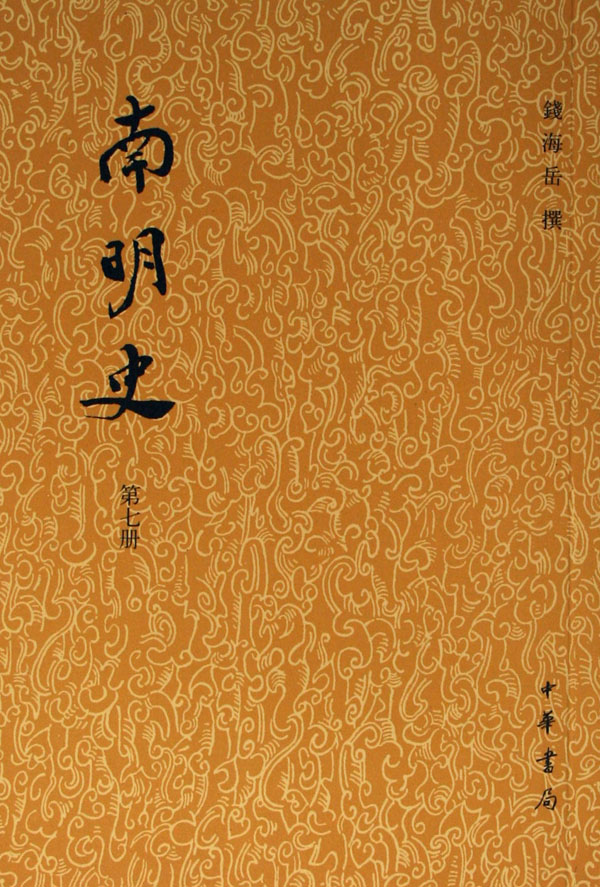 南明史
第七册
錢海岳 撰
中華書局